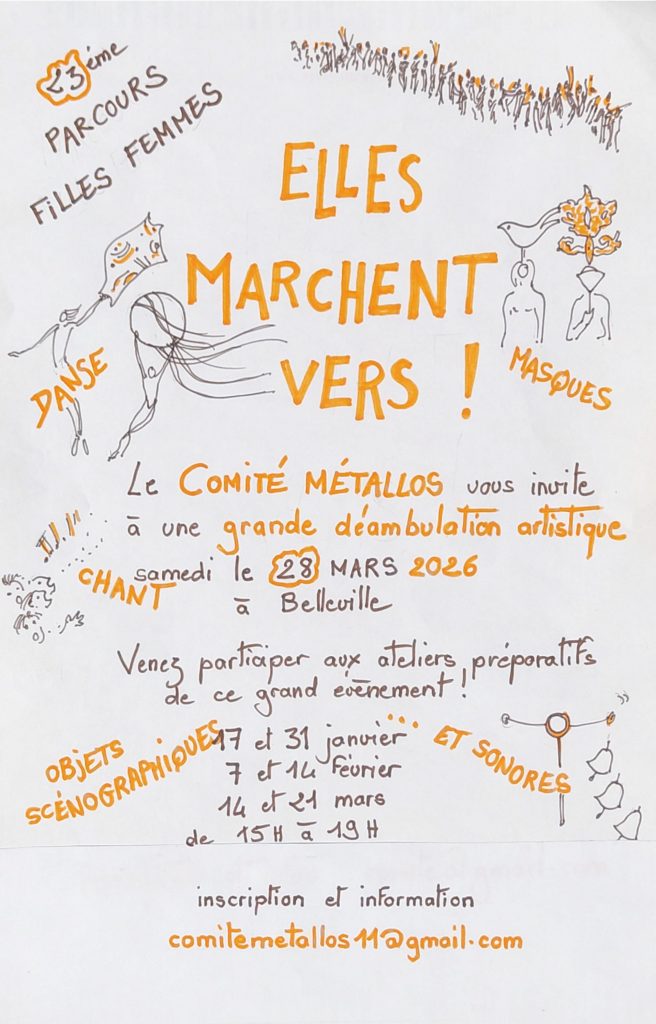 23ème
PARCOURS
FILLES FEMMES
ELLES
MARCHENT
VERS !
DANSE
MASQUES
Le COMITÉ MÉTALLOS vous invite
à une grande déambulation artistique
samedi le 28 MARS 2026
à Belleville
CHANT
Venez participer aux ateliers préparatifs
de ce grand évènement !
OBJETS
SCÉNOGRAPHIQUES
... ET SONORES
17 et 31 janvier
7 et 14 février
14 et 21 mars
de 15H à 19H
inscription et information
comitemetallos11@gmail.com